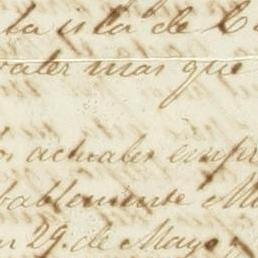 ta isla de C
vater mas que
os actuales empr
bablemente M
n 29. de Mayo,